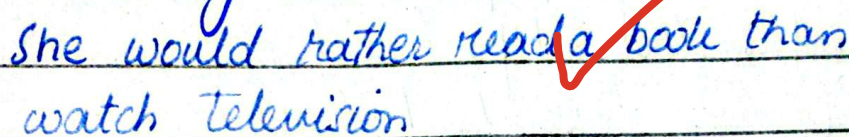 She would rather read a book than
watch television